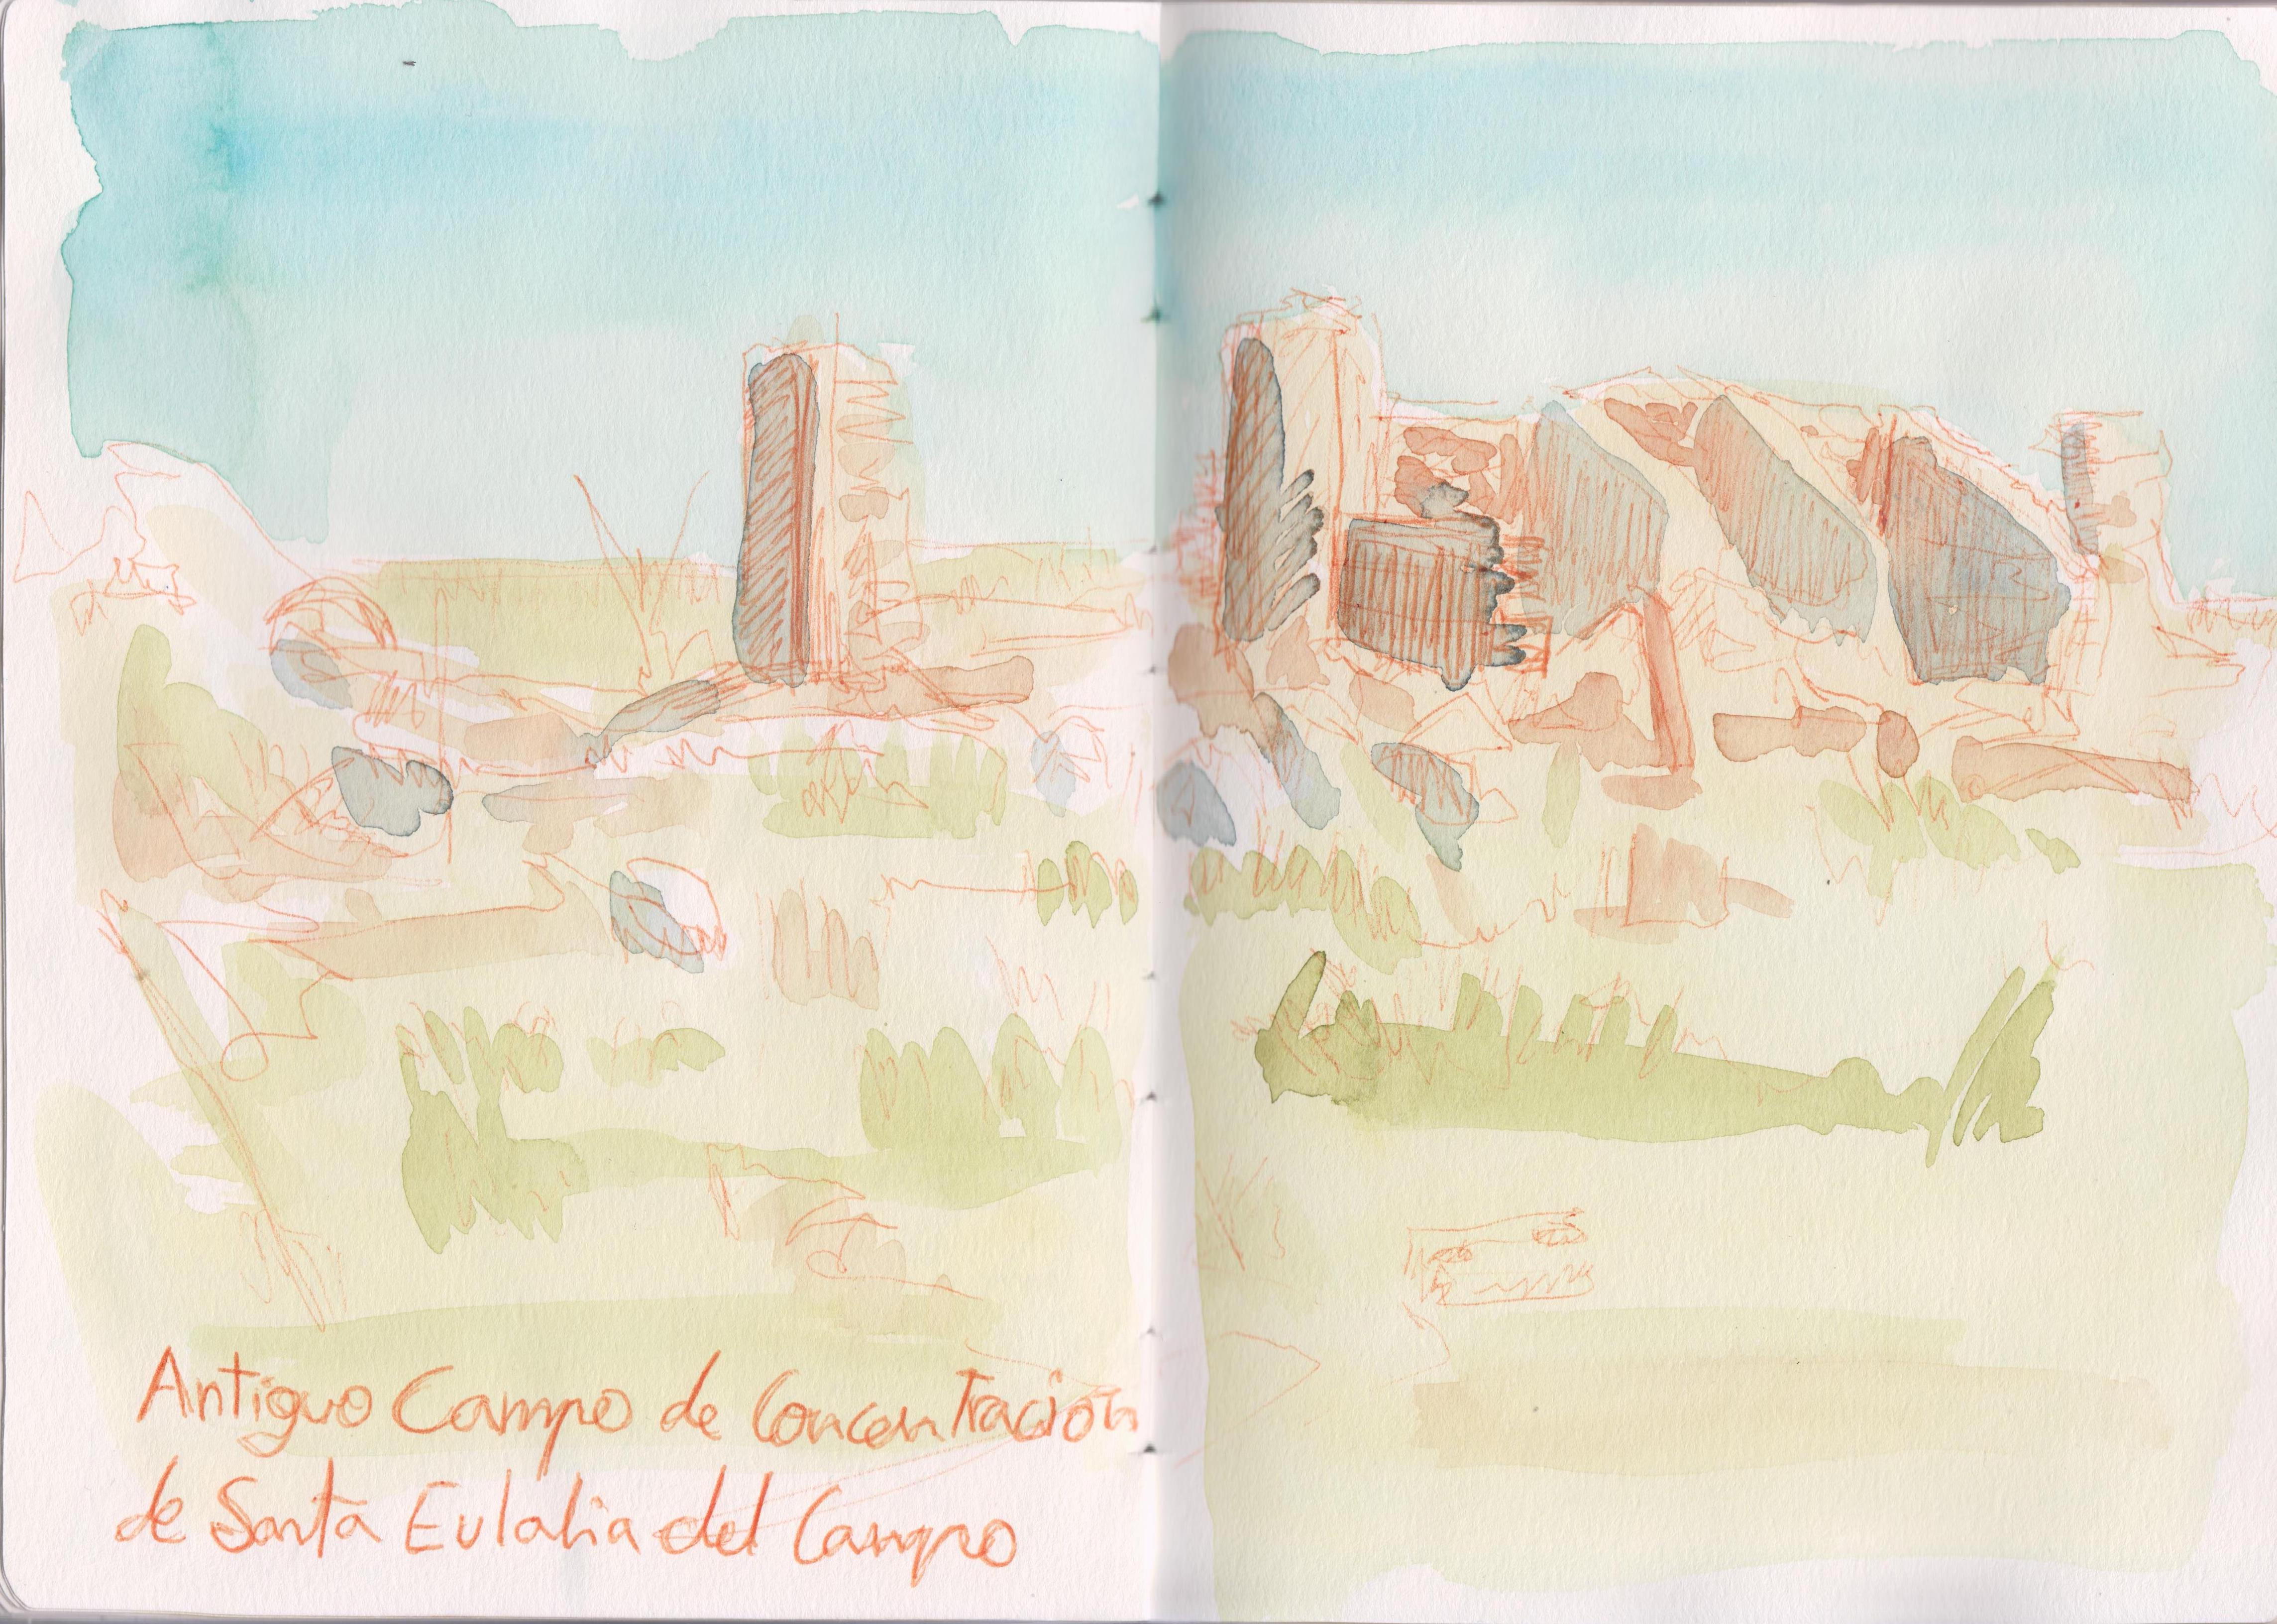 Antiguo Campo de Concentración
de Santa Eulalia del Campo